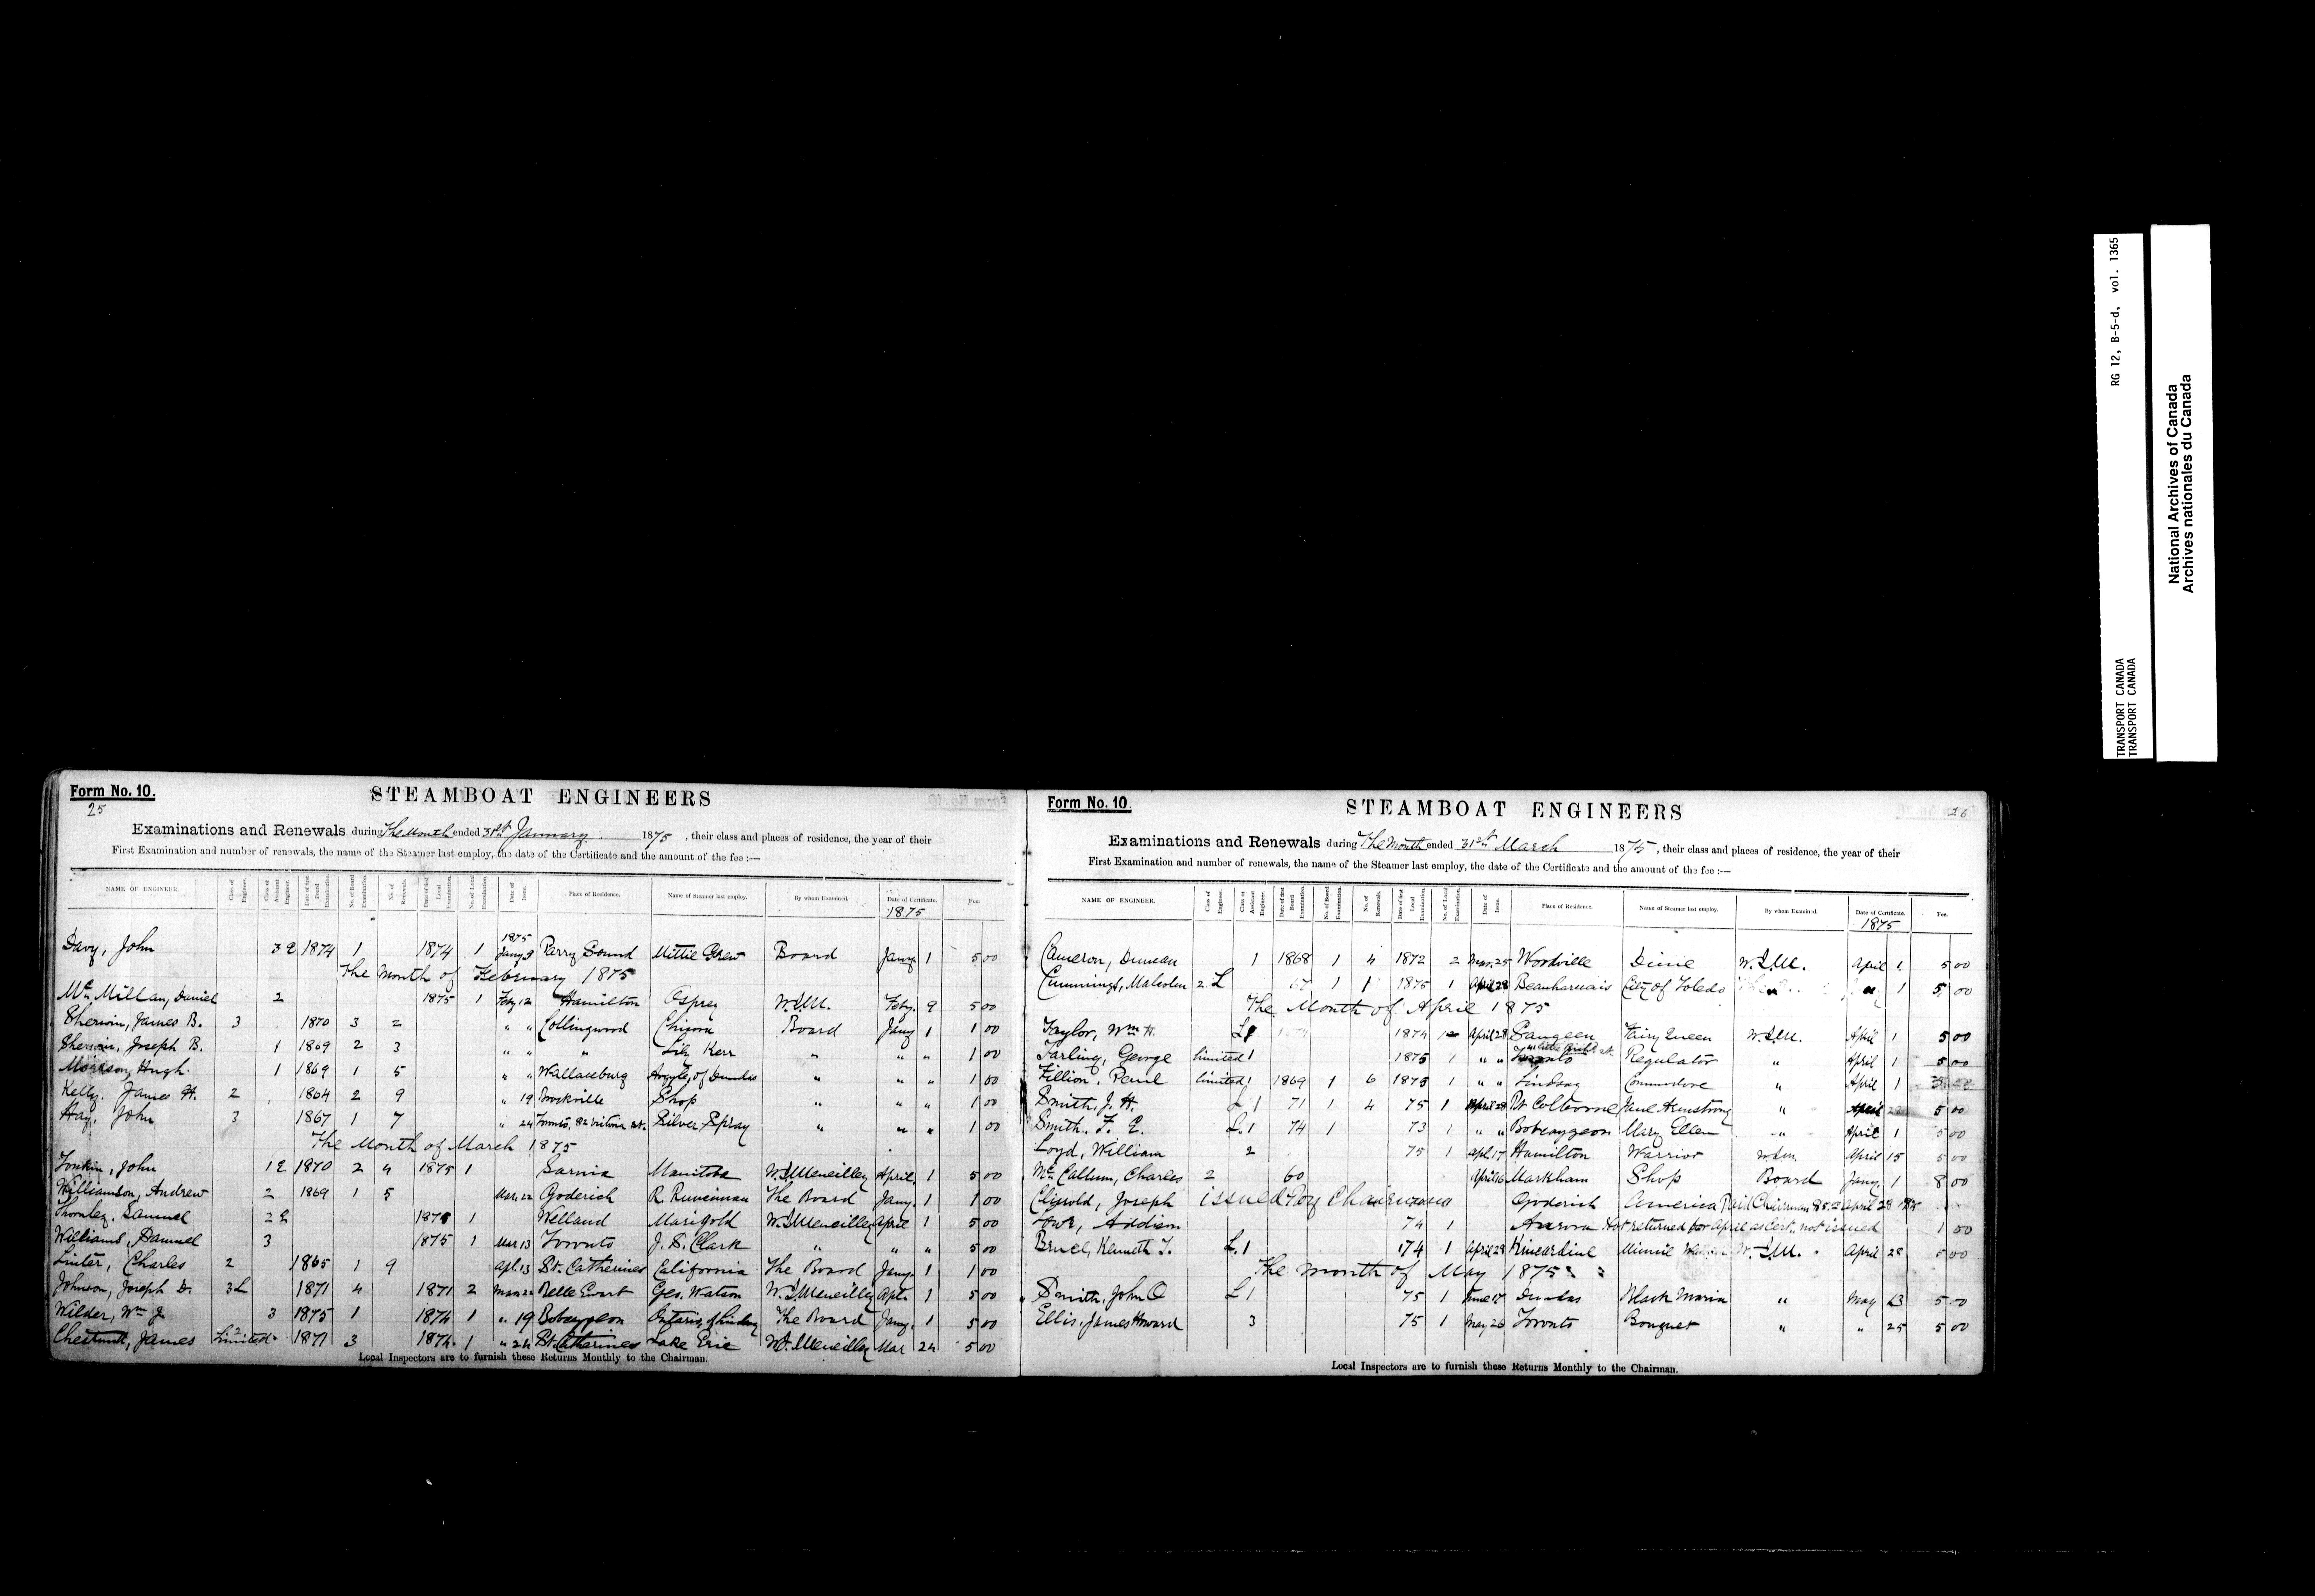 Form No. 10.
25
STEAMBOAT ENGINEERS
Examinations and Renewals during The Month ended 31st January 1875, their class and places of residence, the year of their
First Examination and number of renewals, the name of the Steamer last employ, the date of the Certificate and the amount of the fee :—
NAME OF ENGINEER. Class of Engineer. Class of Assistant Engineer. Date of first Board Examination. No. of Board Examination. No. of Renewals. Date of first Local Examination. No. of Local Examination. Date of Issue. Place of Residence. Name of Steamer last employ. By whom Examined. Date of Certificate. Fee.
1875
1875
Davy, John 3 2 1874 1 1874 1 Jany Parry Sound Mittie Grew Board Jany. 1 5 00
The Month of February 1875
Mc Millan, Daniel 2 1875 1 Feby 12 Hamilton Osprey W.J.M. Feby. 9 5 00
Sherwin, James B. 3 1870 3 2 " " Collingwood Chicora Board Jany 1 1 00
Sherwin, Joseph B. 1 1869 2 3 " " " Lily Kerr " " " 1 00
Morrison, Hugh. 1 1869 1 5 " " Wallaceburg Argyle, of Dundas " " " 1 00
Kelly. James H. 2 1864 2 9 " 19 Brockville Shop " " " 1 00
Hay, John 3 1867 1 7 " 24 Toronto, 82 Victoria st. Silver Spray " " " 1 00
The Month of March 1875
Tonkin, John 1 2 1870 2 4 1875 1 Sarnia Manitoba W.J. Meneilley April. 1 5 00
Williamson, Andrew 2 1869 1 5 Mar. 22 Goderich R. Runciman The Board Jany. 1 1 00
Thornley. Samuel 2 2 187 1 Welland Marigold W.J. Meneilley April 1 5 00
Williams, Samuel 3 1875 1 Mar 13 Toronto J. S. Clark " " " 5 00
Linter, Charles 2 1865 1 9 Apl. 13 St. Catherines California The Board Jany. 1 1 00
Johnson, Joseph D. 3L 1871 4 1871 2 Mar 22 Belle Ewart Geo. Watson W.J. Meneilley Apl. 1 5 00
Wilder, Wm J. 3 1875 1 1874 1 " 19 Bobcaygeon Ontario, of Lindsay The Board Jany. 1 5 00
Chestnut, James Limited 2 1871 3 1874. 1 " 24 St. Catherines Lake Erie W.J. Meneilley Mar 24 5 00
Local Inspectors are to furnish these Returns Monthly to the Chairman.
Form No. 10.
26
STEAMBOAT ENGINEERS
Examinations and Renewals during The Month ended 31st March 1875, their class and places of residence, the year of their
First Examination and number of renewals, the name of the Steamer last employ, the date of the Certificate and the amount of the fee :—
NAME OF ENGINEER. Class of Engineer. Class of Assistant Engineer. Date of first Board Examination. No. of Board Examination. No. of Renewals. Date of first Local Examination. No. of Local Examination. Date of Issue. Place of Residence. Name of Steamer last employ. By whom Examined. Date of Certificate. Fee.
1875
Cameron, Duncan 1 1868 1 4 1872 2 Mar. 25 Woodville Dixie W.J.M. April 1. 5 00
Cummings, Malcolm 2 L 67 1 1 1875 1 April 28 Beauharnais City of Toledo 1 5 00
The Month of April 1875
Taylor, Wm H. L 1874 April 28 Saugeen Fairy Queen W.J.M. April 1 5 00
Tarling, George limited 1 1875 1 " " Toronto Regulator " April 1 5 00
Fillion, Paul limited 1 1869 1 6 1875 1 " " Lindsay Commodore " April 1
Smith, J. H. L 1 71 1 4 75 1 April 28 Pt Colborne Jane Armstrong " April 5 00
Smith. F. E. L. 1 74 1 73 1 " " Bobcaygeon Mary Ellen " April 1 5 00
Loyd, William 2 75 1 Apl. 17 Hamilton Warrior W.J.M. April 15 5 00
Mc Callum, Charles 2 60 April 16 Markham Shop Board Jany. 1 8 00
Clifford, Joseph issued by Chairman Goderich America Paid Chairman $5.00 April 28 1875
Lowe, Addison 74 1 Aurora Not returned for April as Cert. not issued 1 00
Bruce, Kenneth J. L. 1 74 1 April 28 Kincardine Minnie W.J.M. April 28 5 00
The month of May 1875
Smith, John O L 1 75 1 June 17 Dundas Black Maria " May 13 5 00
Ellis, James Howard 3 75 1 May 26 Toronto Bouquet " " 25 5 00
Local Inspectors are to furnish these Returns Monthly to the Chairman.
RG 12, B-5-d, vol. 1365
TRANSPORT CANADA
TRANSPORT CANADA
National Archives of Canada
Archives nationales du Canada